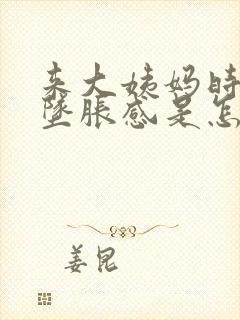 来大姨妈时
坠胀感是怎
姜昆